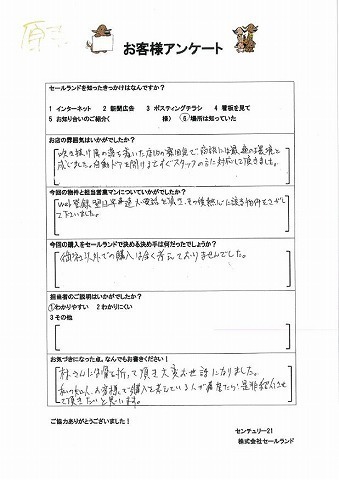 お客様アンケート
セールランドを知ったきっかけはなんですか?
1 インターネット 2 新聞広告 3 ポスティングチラシ 4 看板を見て
5 お知り合いのご紹介( 様) ⑥ 場所は知っていた
お店の雰囲気はいかがでしたか?
感じました。自動ドアを開けるとすぐスタッフの方に対応して頂きました。
今回の物件と担当営業マンについていかがでしたか?
Web登録翌日
下さいました。
今回の購入をセールランドで決める決め手は何だったでしょうか?
御社以外での購入は全く考えておりませんでした。
担当者のご説明はいかがでしたか?
①わかりやすい 2 わかりにくい
3 その他
お気づきになった点。なんでもお書きください!
林さんには骨を折って頂き大変お世話になりました。
私の知人、お客様で購入を考えている人が居たら、是非紹介させ
て頂きたいと思います。
ご協力ありがとうございました!
センチュリー21
株式会社セールランド